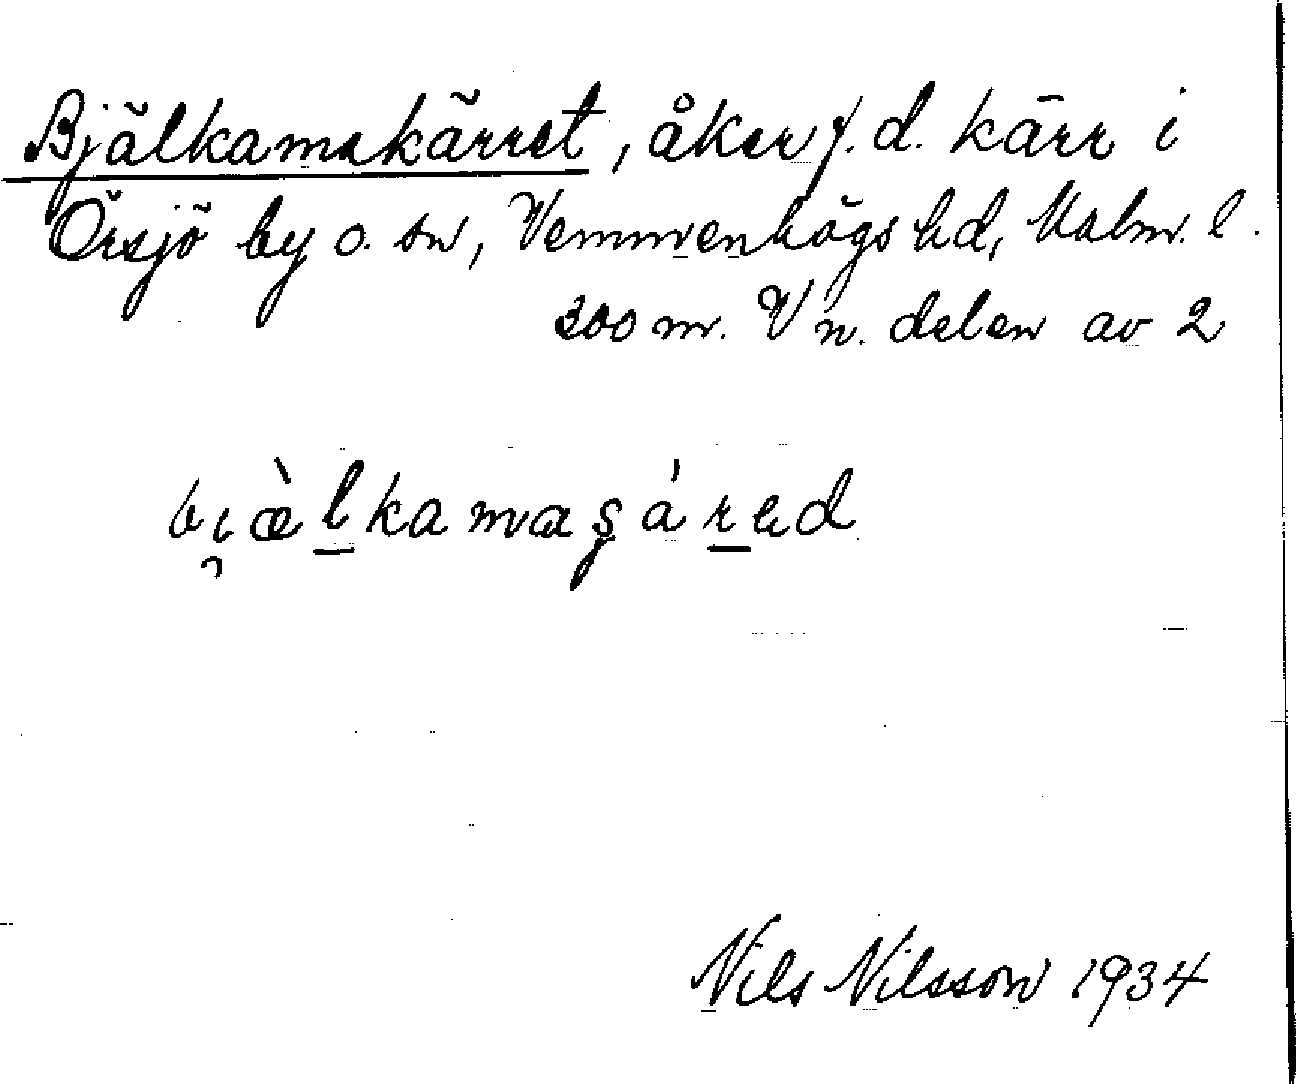 Bjälkamakärret, åker f. d. kärr i
Örsjö by o. sn, Vemmenhögs hd, Malm. l.
300 m. V n. delen av 2
bi̯æ̀l̲kamaşár̲ed
Nils Nilsson 1934